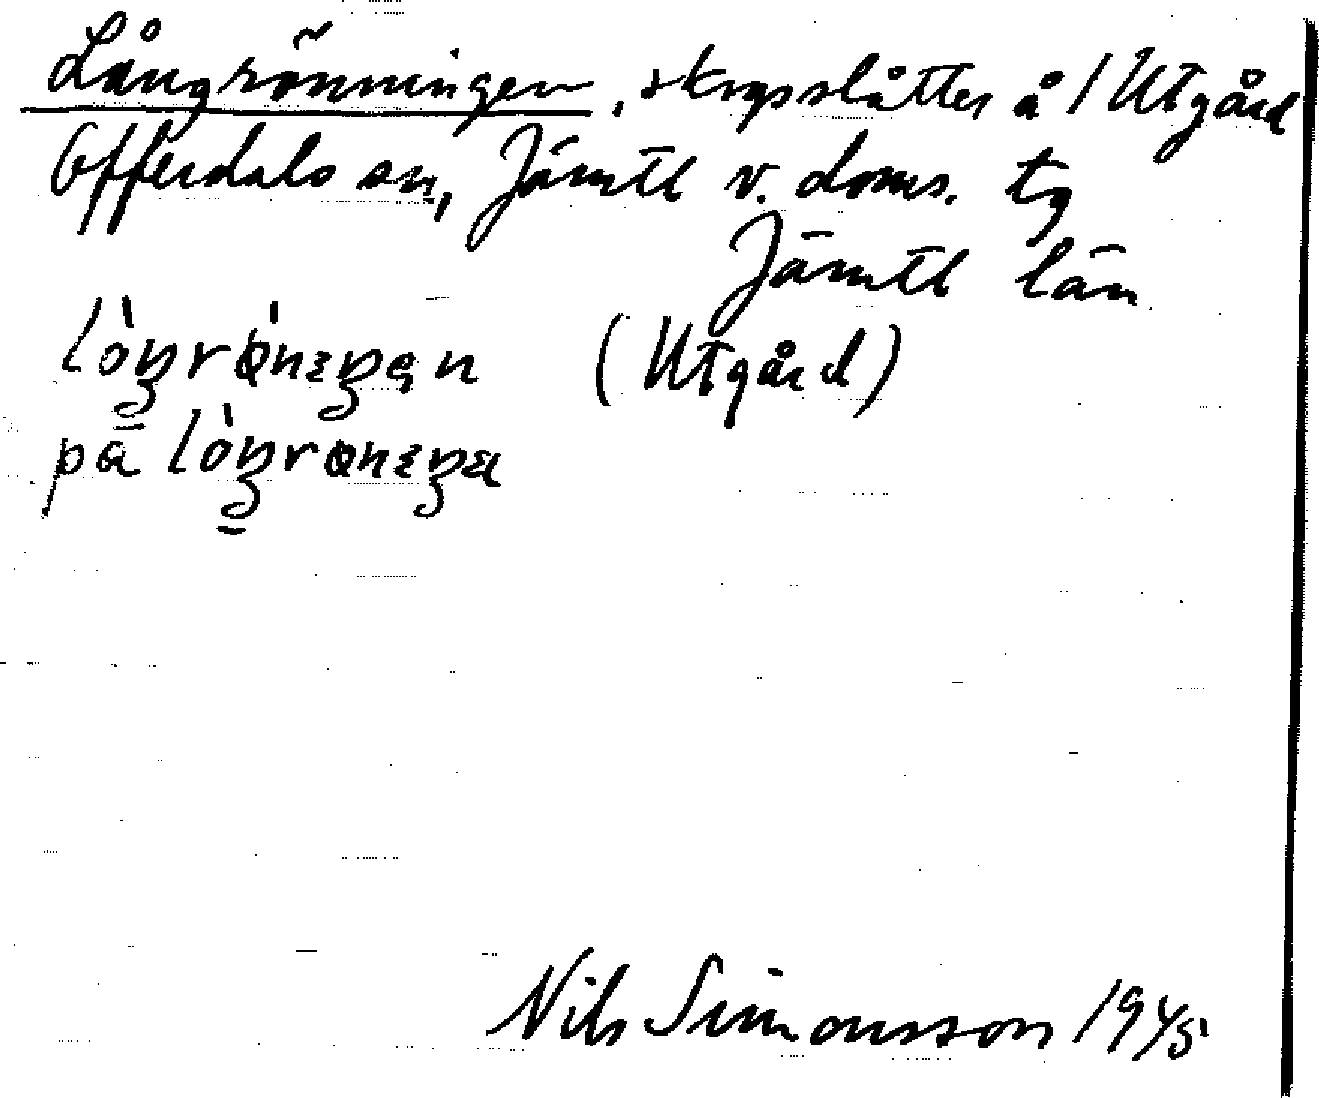 Långrönningen, skogsslåtter å 1 Utgård
Offerdals sn, Jämtl v. doms. tg
Jämtl län
(Utgård)
på
Nils Simonsson 1945